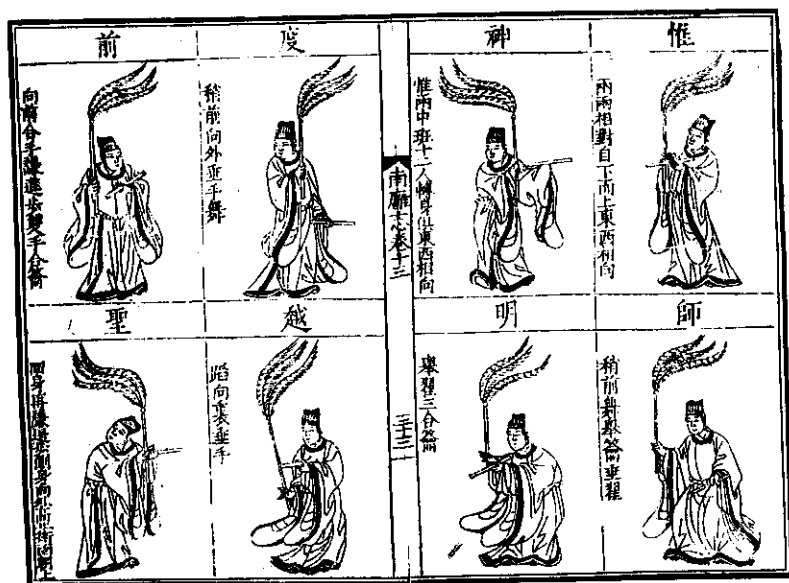 惟
兩兩相對自下而上東西相向
神
惟兩中班十二人轉身俱東西相向
師
稍前舞舉籥垂翟
明
舉翟三合籥
南廱志卷十三
三十三
度
稍前向外垂手舞
前
向前合手謙進步雙手合籥
越
蹈向裏垂手
聖